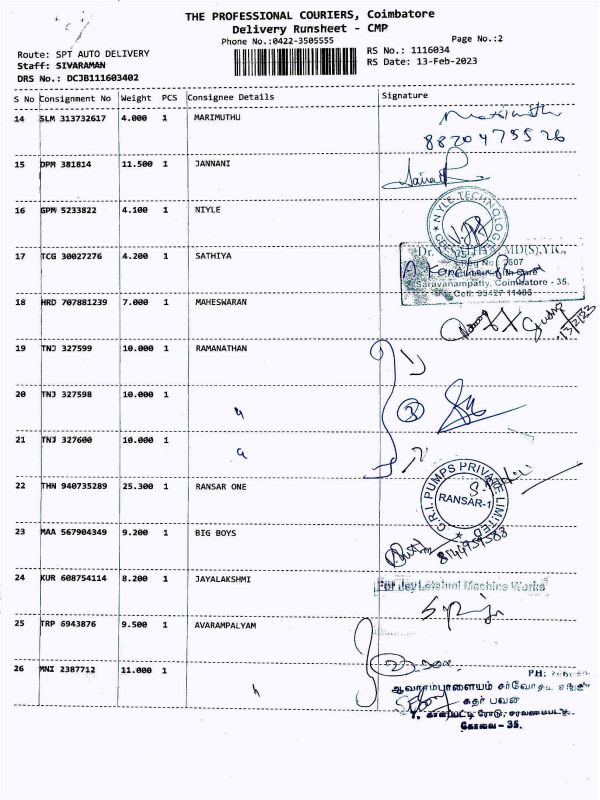 THE PROFESSIONAL COURIERS, Coimbatore
Delivery Runsheet - CMP
Phone No.:0422-3505555
Page No.:2
Route: SPT AUTO DELIVERY
Staff: SIVARAMAN
DRS No.: DCJB111603402
RS No.: 1116034
RS Date: 13-Feb-2023
S No Consignment No Weight PCS Consignee Details Signature
14 SLM 313732617 4.000 1 MARIMUTHU
8820475526
15 DPM 381814 11.500 1 JANNANI
16 GPM 5233822 4.100 1 NIYLE
NIYLE TECHNOLOGIES
17 TCG 30027276 4.200 1 SATHIYA
Saravanampatty, Coimbatore - 35.
18 HRD 707881239 7.000 1 MAHESWARAN
13/2/23
19 TNJ 327599 10.000 1 RAMANATHAN
20 TNJ 327598 10.000 1 "
3
21 TNJ 327600 10.000 1 "
22 THN 940735289 25.300 1 RANSAR ONE
C.R.I. PUMPS PRIVATE LIMITED
RANSAR-1
23 MAA 567904349 9.200 1 BIG BOYS
24 KUR 608754114 8.200 1 JAYALAKSHMI
For Jay Letshmi Machine Works
25 TRP 6943876 9.500 1 AVARAMPALYAM
26 MNI 2387712 11.000 1 "
PH:
ஆவாரம்பாளையம் சர்வோதய சங்கம்
கதர் பவன்
கோவை - 35.